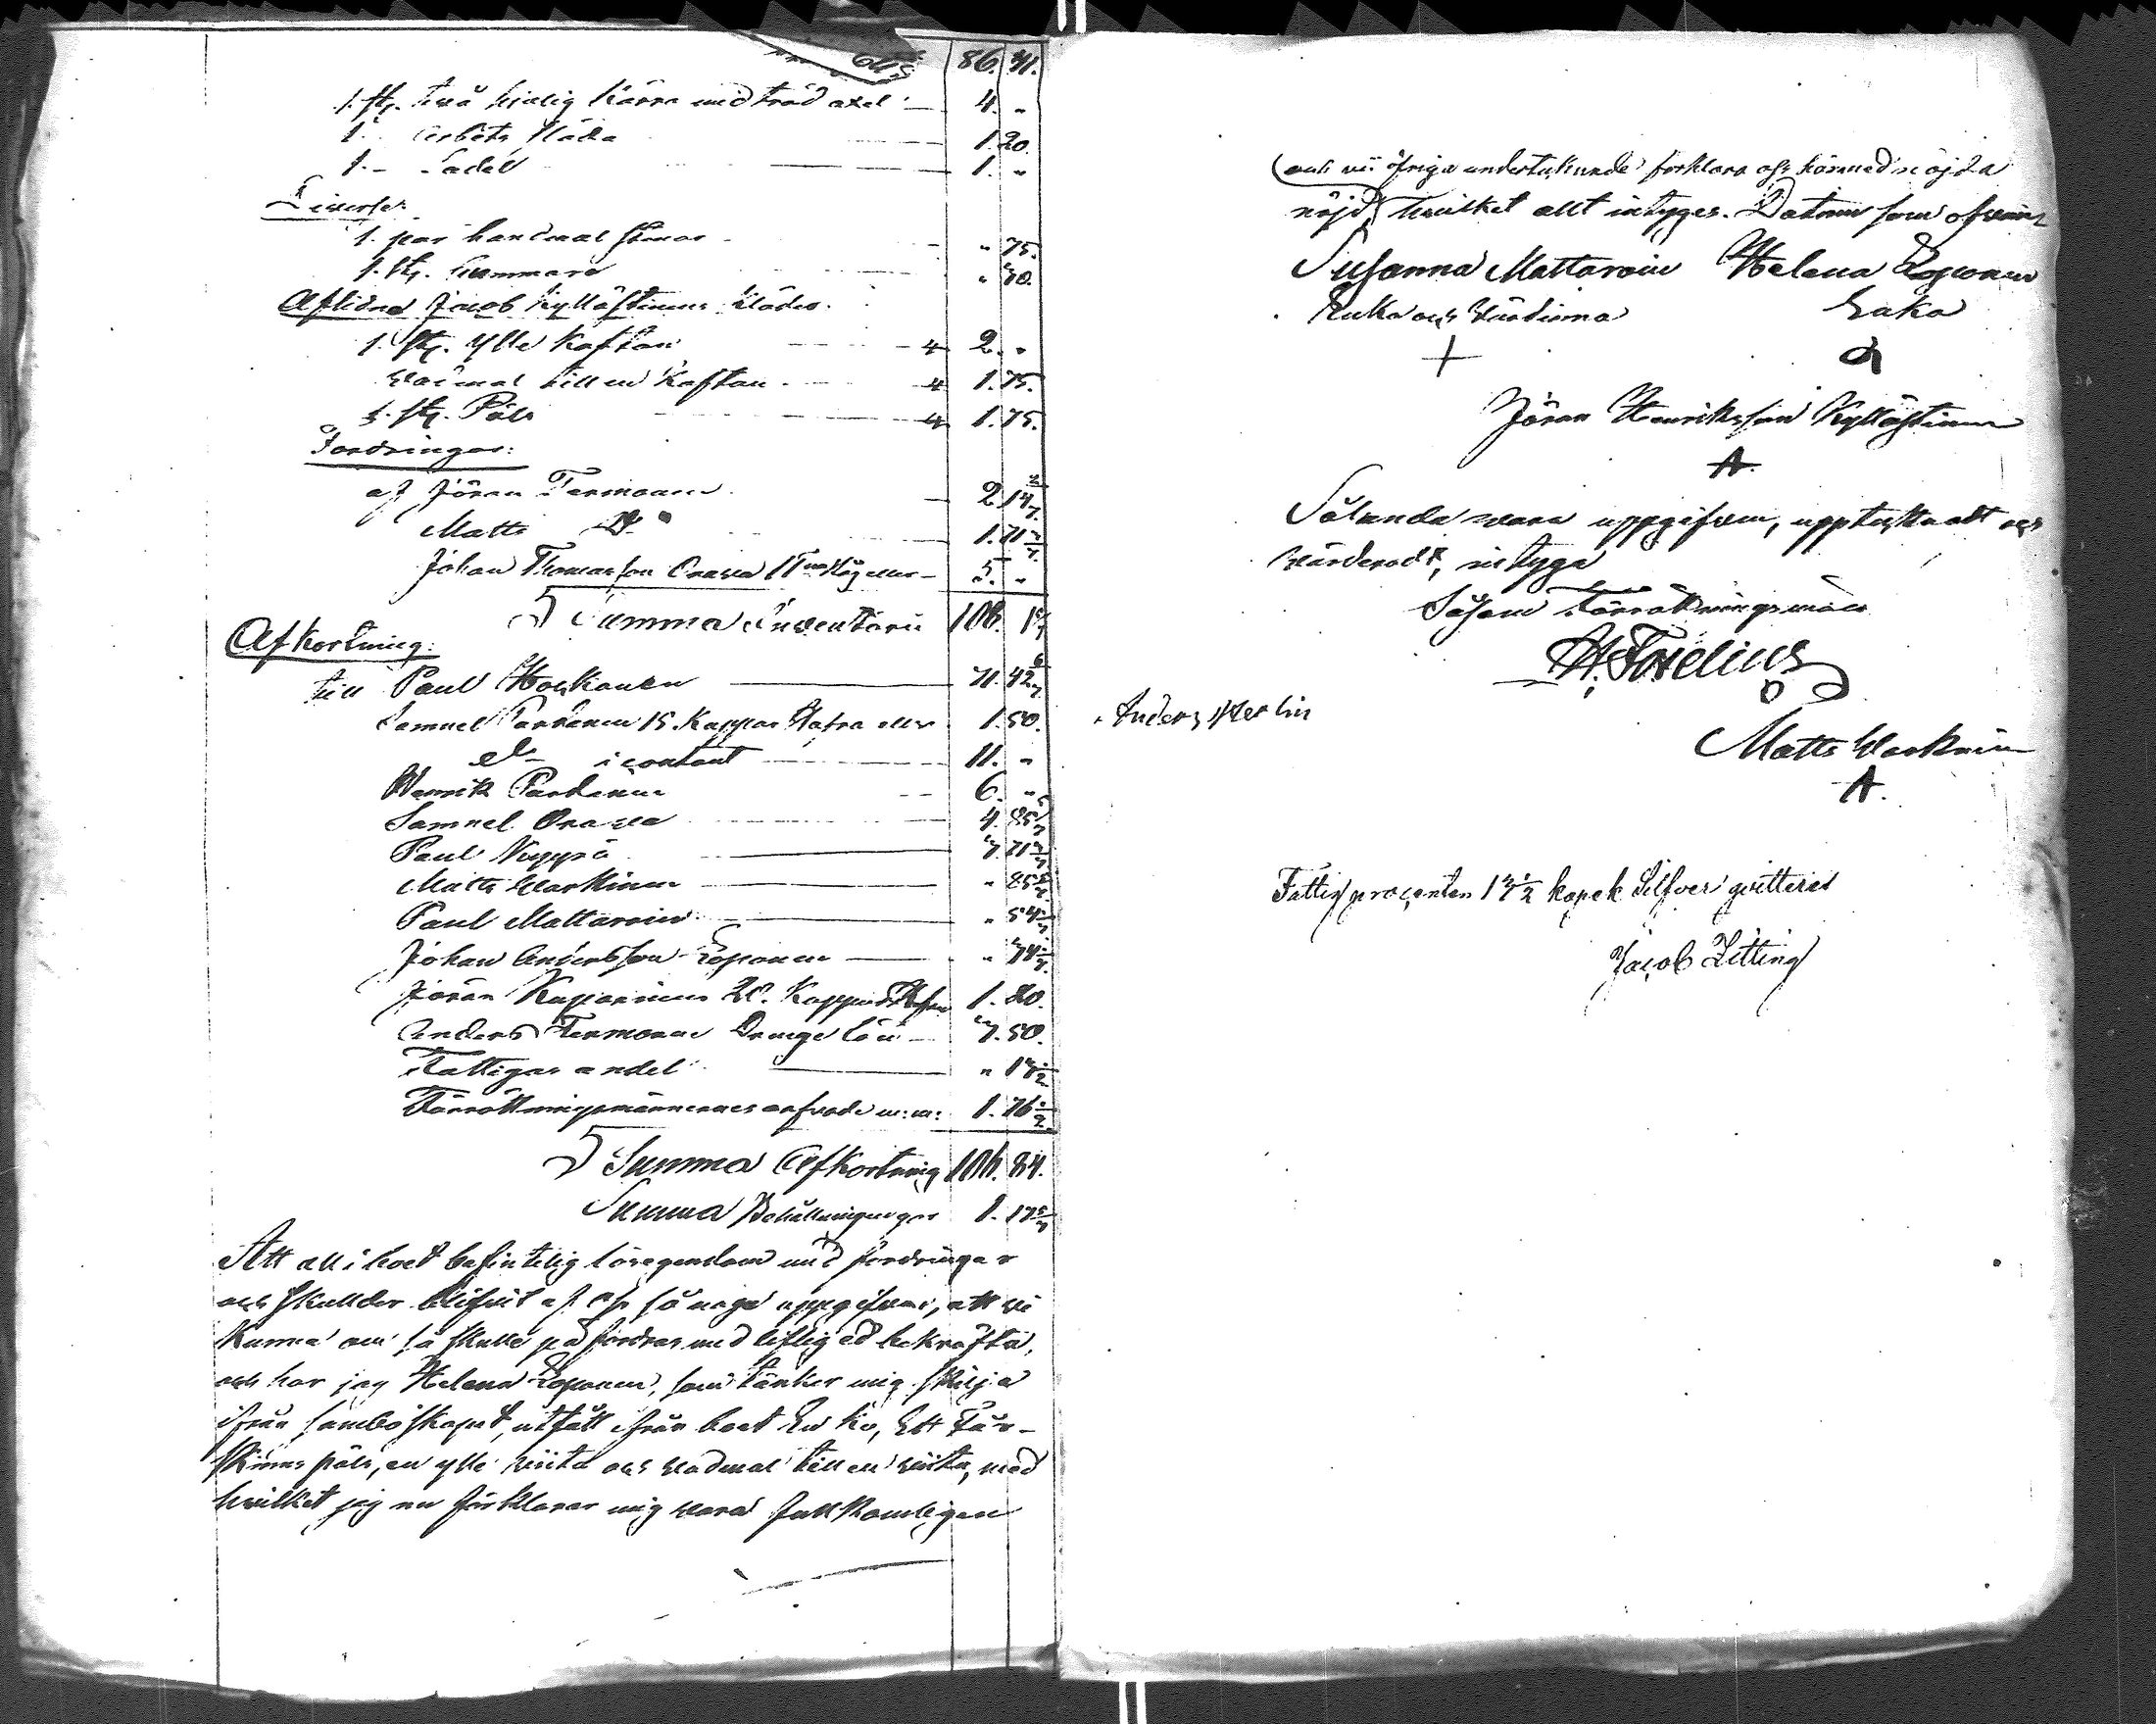 86. 41.
1. st. två hjulig Kärra med träd axel 4. "
1. - Arbets Släda 1. 20.
1. - Sadel 1. "
Diverse:
1. par handmal stenar " 75.
1. st. hammare "
Aflidne Jacob Kyllästinens Kläder.
1. st. Ylle Kaftan 2. "
Wadmal till en Kaftan 1. 75.
1. st. Päls 1. 75.
Fordringar:
af Jöran Termonen 2 14 2/7
Matts D:o 1. 71 3/7
Johan Thomasson Orawa 5. "
Summa Inventarii 108. 1 5/7
Afkortning:
till Paul Hockanen 71. 42 6/7
Samuel Parkanen 15. Kappar Hafra eller 1. 50.
d:o i contant 11. "
Henrik Parkanen 6. "
Samuel Orawa 4. 85 5/7
Paul Nuppo
Matts Warkinen " 85 5/7
Paul Mattaroin " 54
Johan Andersson Loponen
Jöran Kuparinen 20. Kappar Hafra 1. 80.
Anders Termonen Drenge lön 50.
Fattigas andel " 17 1/2
Förrättningsmännernes arfvode m: m: 1. 76 1/2
Summa Afkortning 106. 84.
Summa Behållningen gör 1. 17 5/7
Att all i boet befintelig lösegendom med fordringar
och skulder blifvit af oss så noga uppgifvne, att vi
kunna om så skulle på fordras med liflig ed bekräfta,
och har jag Helena Loponen, som tänker mig skilja
ifrån samboskapet, utfått ifrån boet En Ko, Ett Får-
skinns päls, en ylle wiita och wadmal till en wiita, med
hvilket jag nu förklarar mig wara fullkomligen
och vi öfriga undertecknade förklara oss härmed nöjda
nöjd, hvilket allt intyges. Datum som ofvan
Susanna Mattaroin Helena Loponen
Enka och Wärdinna Enka
Jöran Henriksson Kyllästinen
Sålunda wara uppgifven, upptecknadt och
wärderadt, intyga
Såsom Förrättningsmän
Anders Herlin
Matts Warkinen
Fattigprocenten 17 1/2 kopek Silfver qvitteras
Jacob Zitting